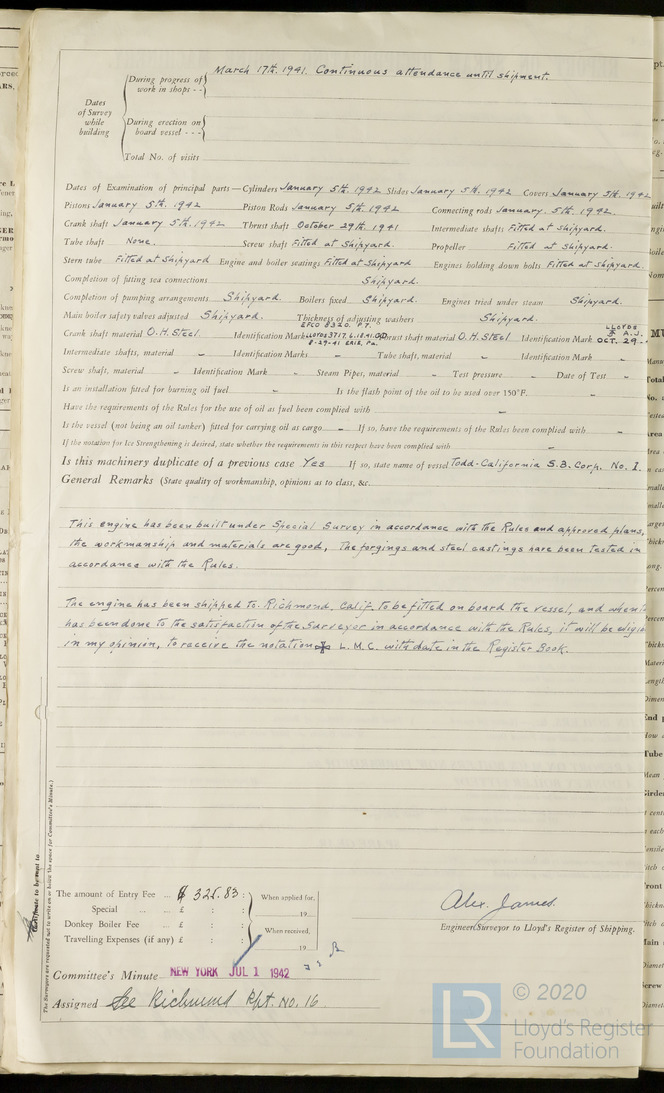 March 17th. 1941. Continuous attendance until shipment.
During progress of
work in shops - -
Dates
of Survey
while
building
During erection on
board vessel - - -
Total No. of visits
Dates of Examination of principal parts—Cylinders January 5th. 1942 Slides January 5th. 1942 Covers January 5th. 1942
Pistons January 5th. 1942 Piston Rods January 5th. 1942 Connecting rods January. 5th. 1942.
Crank shaft January 5th. 1942 Thrust shaft October 29th. 1941 Intermediate shafts Fitted at Shipyard.
Tube shaft None. Screw shaft Fitted at Shipyard. Propeller Fitted at Shipyard.
Stern tube Fitted at Shipyard Engine and boiler seatings Fitted at Shipyard Engines holding down bolts Fitted at Shipyard.
Completion of fitting sea connections Shipyard.
Completion of pumping arrangements Shipyard. Boilers fixed Shipyard. Engines tried under steam Shipyard.
Main boiler safety valves adjusted Shipyard. Thickness of adjusting washers Shipyard.
EFCO 8320. P7. LLOYDS
Crank shaft material O.H. Steel Identification Mark Thrust shaft material O.H. Steel Identification Mark A.J. OCT. 29
8-29-41 ERIE, Pa.
Intermediate shafts, material - Identification Marks - Tube shaft, material - Identification Mark -
Screw shaft, material - Identification Mark - Steam Pipes, material - Test pressure - Date of Test -
Is an installation fitted for burning oil fuel - Is the flash point of the oil to be used over 150°F. -
Have the requirements of the Rules for the use of oil as fuel been complied with -
Is the vessel (not being an oil tanker) fitted for carrying oil as cargo - If so, have the requirements of the Rules been complied with -
If the notation for Ice Strengthening is desired, state whether the requirements in this respect have been complied with -
Is this machinery duplicate of a previous case Yes If so, state name of vessel Todd-California S.B. Corp. No. 1.
General Remarks (State quality of workmanship, opinions as to class, &c.
This engine has been built under Special Survey in accordance with the Rules and approved plans,
the workmanship and materials are good, The forgings and steel castings have been tested in
accordance with the Rules.
The engine has been shipped to Richmond, Calif. to be fitted on board the vessel, and when
has been done to the satisfaction of the Surveyor in accordance with the Rules, it will be
in my opinion, to receive the notation ✠ L.M.C. with date in the Register Book.
The Surveyors are requested not to write on or below the space for Committee's Minute.)
Certificate to be sent to
The amount of Entry Fee ... $ 325.83 : When applied for,
Special ... ... £ : : 19
Donkey Boiler Fee ... £ : : When received,
Travelling Expenses (if any) £ : : 19
Alex. James.
Engineer Surveyor to Lloyd's Register of Shipping.
Committee's Minute NEW YORK JUL 1 1942
Assigned See Richmond Rpt. No. 16
LR
© 2020
Lloyd's Register
Foundation